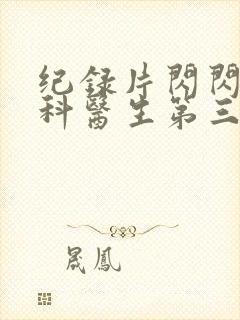 纪録片閃閃
科醫生第三
晟鳳